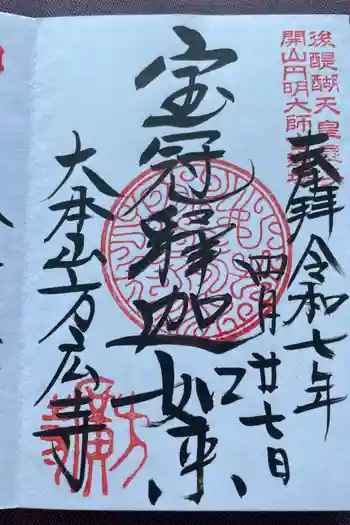 後醍醐天皇
開山円明大師
奉拝
令和七年
四月廿七日
宝冠釋迦如来
大本山方広寺